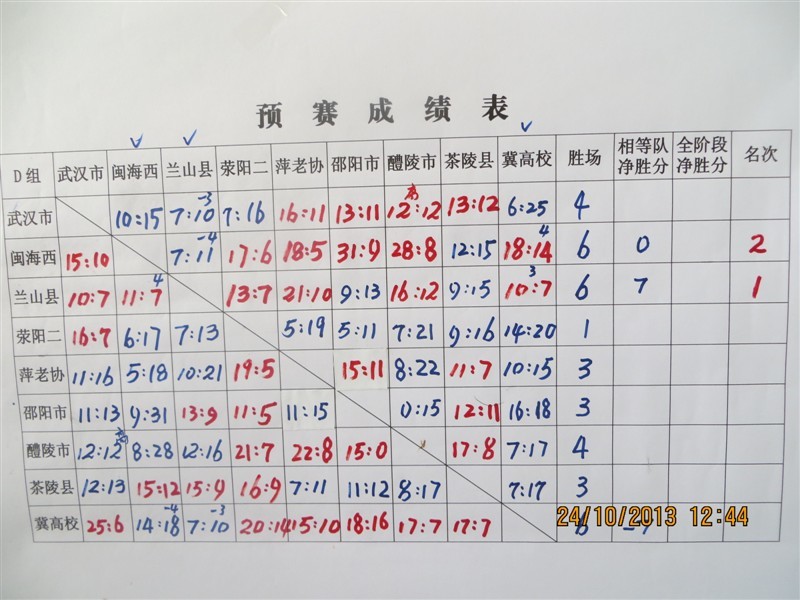 预赛成绩表
D组 武汉市 闽海西 兰山县 荥阳二 萍老协 邵阳市 醴陵市 茶陵县 冀高校 胜场 相等队净胜分 全阶段净胜分 名次
武汉市 10:15 7:10 -3 7:16 16:11 13:11 12:12 13:12 6:25 4
闽海西 15:10 7:11 -4 17:6 18:5 31:9 28:8 12:15 18:14 4 6 0 2
兰山县 10:7 11:7 4 13:7 21:10 9:13 16:12 9:15 10:7 3 6 7 1
荥阳二 16:7 6:17 7:13 5:19 5:11 7:21 9:16 14:20 1
萍老协 11:16 5:18 10:21 19:5 15:11 8:22 11:7 10:15 3
邵阳市 11:13 9:31 13:9 11:5 11:15 0:15 12:11 16:18 3
醴陵市 12:12 8:28 12:16 21:7 22:8 15:0 17:8 7:17 4
茶陵县 12:13 15:12 15:9 16:9 7:11 11:12 8:17 7:17 3
冀高校 25:6 14:18 -4 7:10 -3 20:14 15:10 18:16 17:7 17:7 6 -7
24/10/2013 12:44